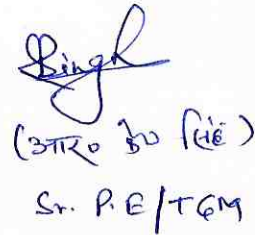 Singh
(आर० के० सिंह)
Sr. P.E/TGM